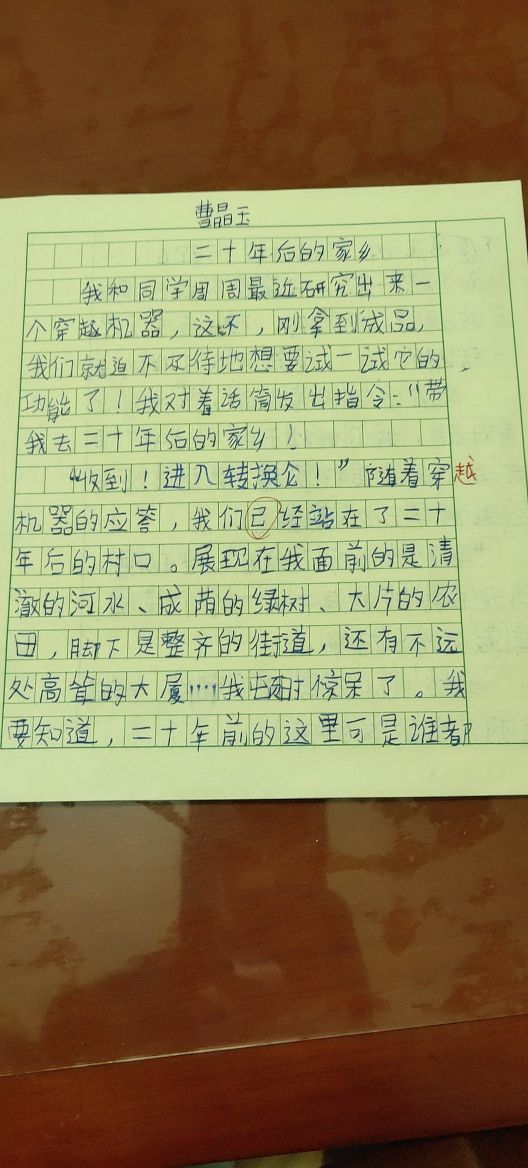 曹晶玉
二十年后的家乡
我和同学周周最近研究出来一
个穿越机器，这不，刚拿到成品，
我们就迫不及待地想要试一试它的
功能了！我对着话筒发出指令：“带
我去二十年后的家乡！
“收到！进入转换仓！”随着穿越
机器的应答，我们已经站在了二十
年后的村口。展现在我面前的是清
澈的河水、成荫的绿树、大片的农
田，脚下是整齐的街道，还有不远
处高耸的大厦……我顿时惊呆了。我
要知道，二十年前的这里可是谁都